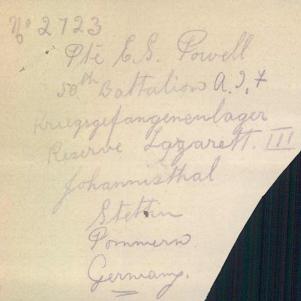 No 2723
Pte E. S. Powell
50th Battalion A. I. F
Kriegsgefangenenlager
Reserve Lazarett. III
Johannisthal
Stettin
Pommern.
Germany.